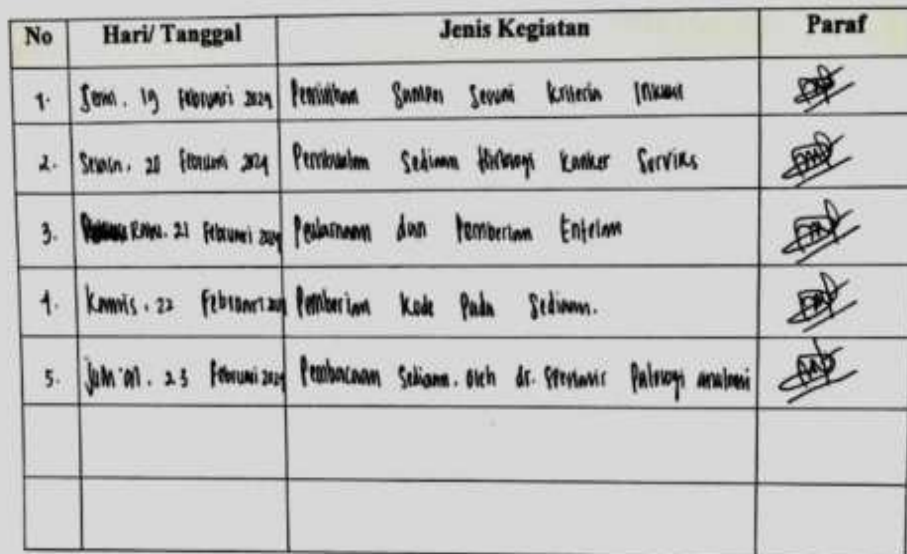 No Hari/ Tanggal Jenis Kegiatan Paraf
1. Senin. 19 Februari 2024 Pemilihan Sampel Sesuai Kriteria Inklusi
2. Selasa. 20 Februari 2024 Pembuatan Sediaan Histologi Kanker Serviks
3. Rabu. 21 Februari 2024 Pewarnaan dan Pemberian Entelan
4. Kamis. 22 Februari 2024 Pemberian Kode Pada Sediaan.
5. Jum'at. 23 Februari 2024 Pembacaan Sediaan. oleh dr. Patologi anatomi